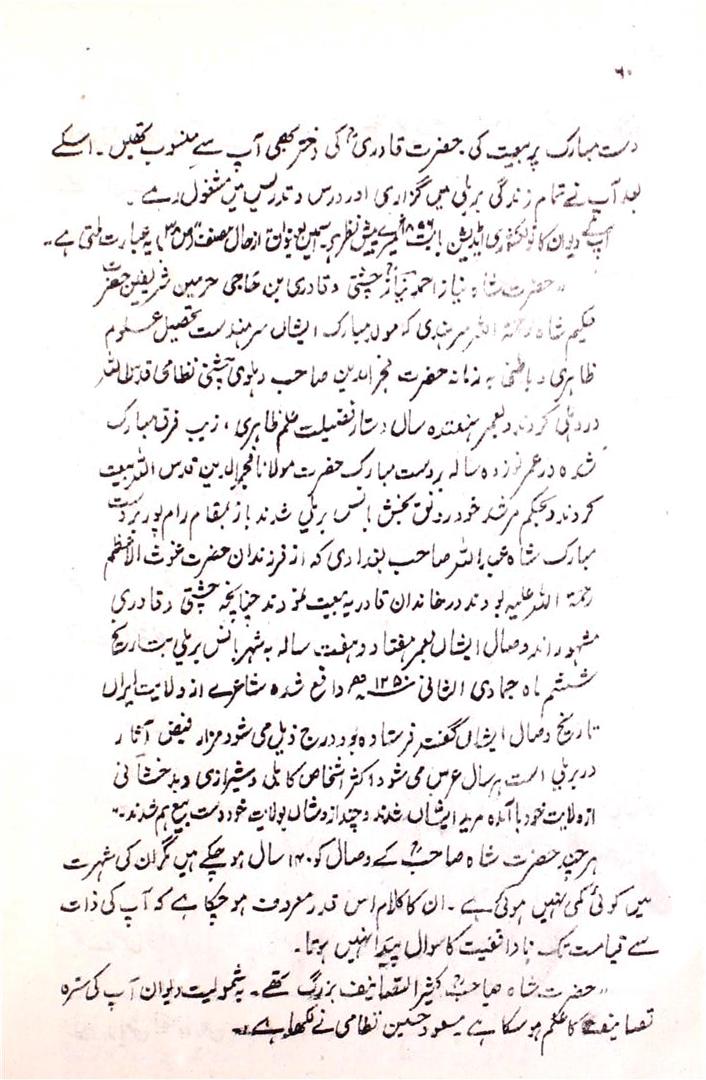 ۶۰
دست مبارک پر بیعت کی حضرت قادریؒ کی دختر بھی آپ سے منسوب تھیں۔ اسکے
بعد آپ نے تمام زندگی بریلی میں گزاری اور درس و تدریس میں مشغول رہے۔
آپکے دیوان کا نولکشوری ایڈیشن بابت ۱۸۵۶ء میرے پیش نظر ہے اسمیں بعنوان از حال مصنف (ص ۳۸) یہ عبارت ملتی ہے۔
"حضرت شاہ نیاز احمد نیازؒ چشتی و قادری بن حاجی حرمین شریفین حضرت
حکیم شاہ رحمۃ اللہ سرہندی کہ مولد مبارک ایشاں سرہندست تحصیل علوم
ظاہری و باطنی بہ زمانہ حضرت فخرالدین صاحب دہلوی چشتی نظامی قدس اللہ
در دہلی کردند و بعمر ہفتدہ سال دستار فضیلت علم ظاہری، زیب فرق مبارک
شدہ در عمر نوزدہ سالہ بردست مبارک حضرت مولانا فخرالدین قدس اللہ بیعت
کردند و بحکم مرشد خود رونق بخش بانس بریلی شدند باز بمقام رام پور بردست
مبارک شاہ عبداللہ صاحب بغدادی کہ از فرزندان حضرت غوث الاعظم
رحمۃ اللہ علیہ بودند در خاندان قادریہ بیعت نمودند چنانچہ چشتی و قادری
مشہور اند وصال ایشاں بعمر ہفتاد و ہفت سالہ بہ شہر بانس بریلی بتاریخ
ششم ماہ جمادی الثانی ۱۲۵۰ھ واقع شدہ شاعرے از ولایت ایران
تاریخ وصال ایشاں گفتہ فرستادہ بود درج ذیل می شود مزار فیض آثار
در بریلی است ہر سال عرس می شود اکثر اشخاص کابلی و شیرازی و بدخشانی
از ولایت خود با آمدہ مرید ایشاں شدند و چند از وشاں بولایت خود دست بیع ہم شدند۔"
ہر چند حضرت شاہ صاحبؒ کے وصال کو ۱۴۰ سال ہو چکے ہیں مگر ان کی شہرت
میں کوئی کمی نہیں ہوئی ہے۔ ان کا کلام اس قدر معروف ہو چکا ہے کہ آپ کی ذات
سے قیامت تک ناواقفیت کا سوال پیدا نہیں ہوتا۔
"حضرت شاہ صاحبؒ کثیر التصانیف بزرگ تھے۔ بشمولیت دیوان آپ کی سترہ
تصانیف کا علم ہو سکا ہے مسعود حسین نظامی نے لکھا ہے:۔